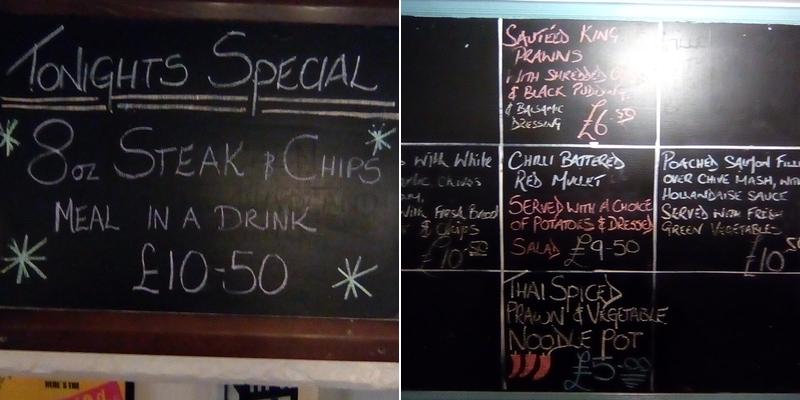 TONIGHTS SPECIAL
8oz STEAK & CHIPS
MEAL IN A DRINK
£10-50
HERE'S THE
SAUTÉED KING
PRAWNS
WITH SHREDDED
& BLACK PUDDING
& BALSAMIC
DRESSING £6-50
With White
With Fresh Bread
& Chips
£10-50
CHILLI BATTERED
RED MULLET
SERVED WITH A CHOICE
OF POTATOES & DRESSED
SALAD £9-50
POACHED SALMON FILL
OVER CHIVE MASH, WITH
HOLLANDAISE SAUCE
SERVED WITH FRESH
GREEN VEGETABLES
£10-50
THAI SPICED
PRAWN & VEGETABLE
NOODLE POT
£5-00